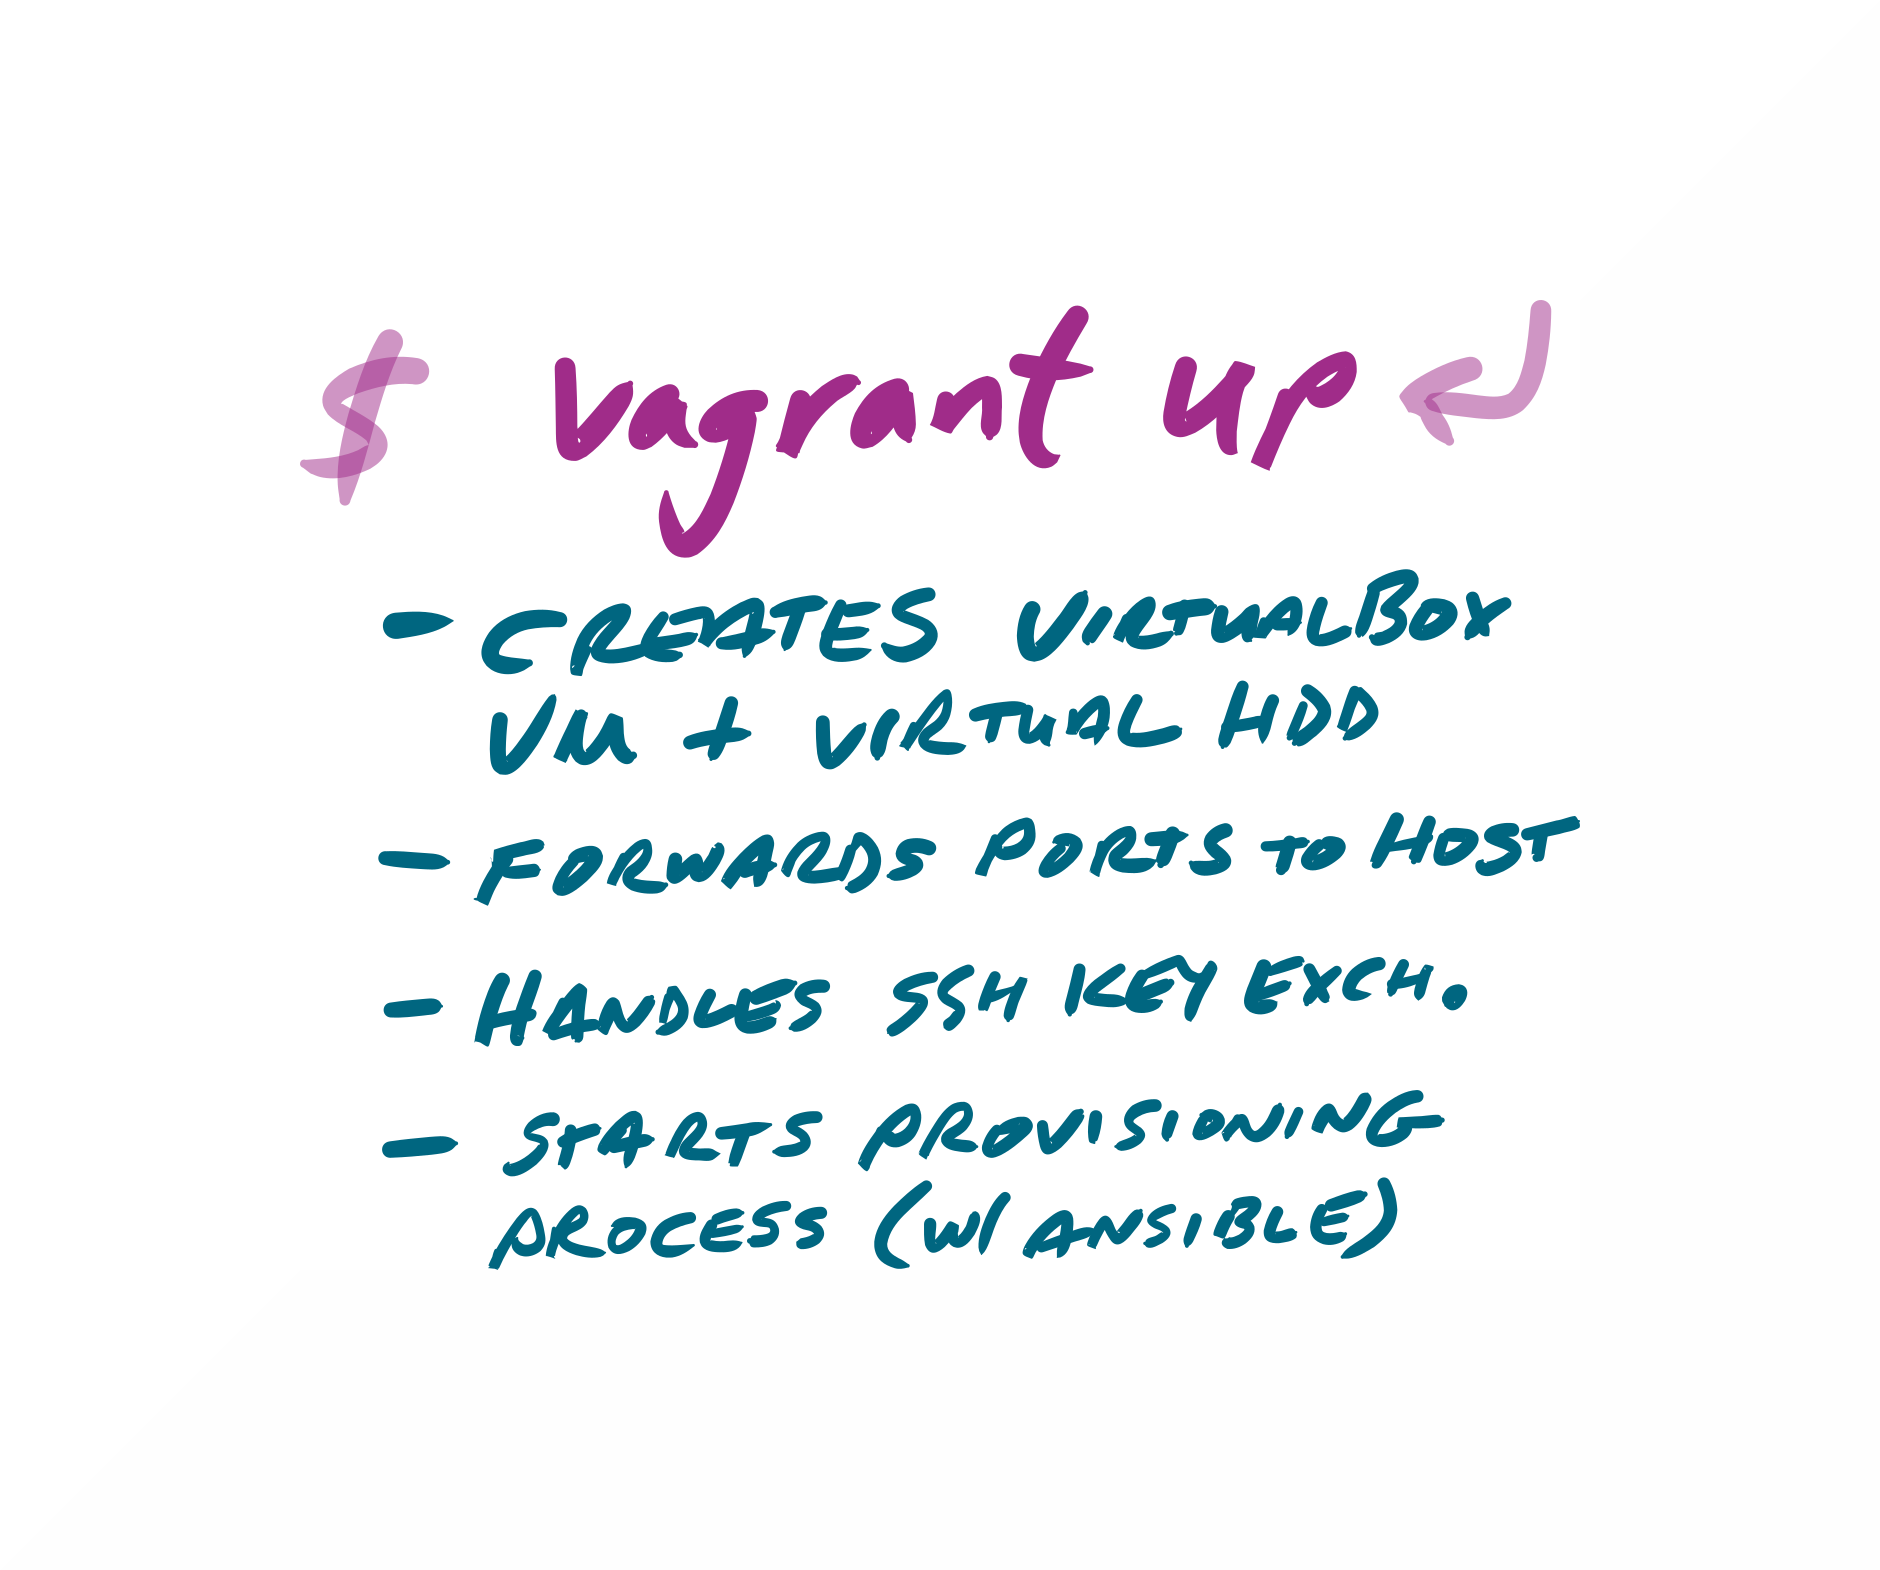 $ vagrant up ↵
- CREATES VIRTUALBOX
VM + VIRTUAL HDD
- FORWARDS PORTS to HOST
- HANDLES SSH KEY EXCH.
- STARTS PROVISIONING
PROCESS (W/ ANSIBLE)